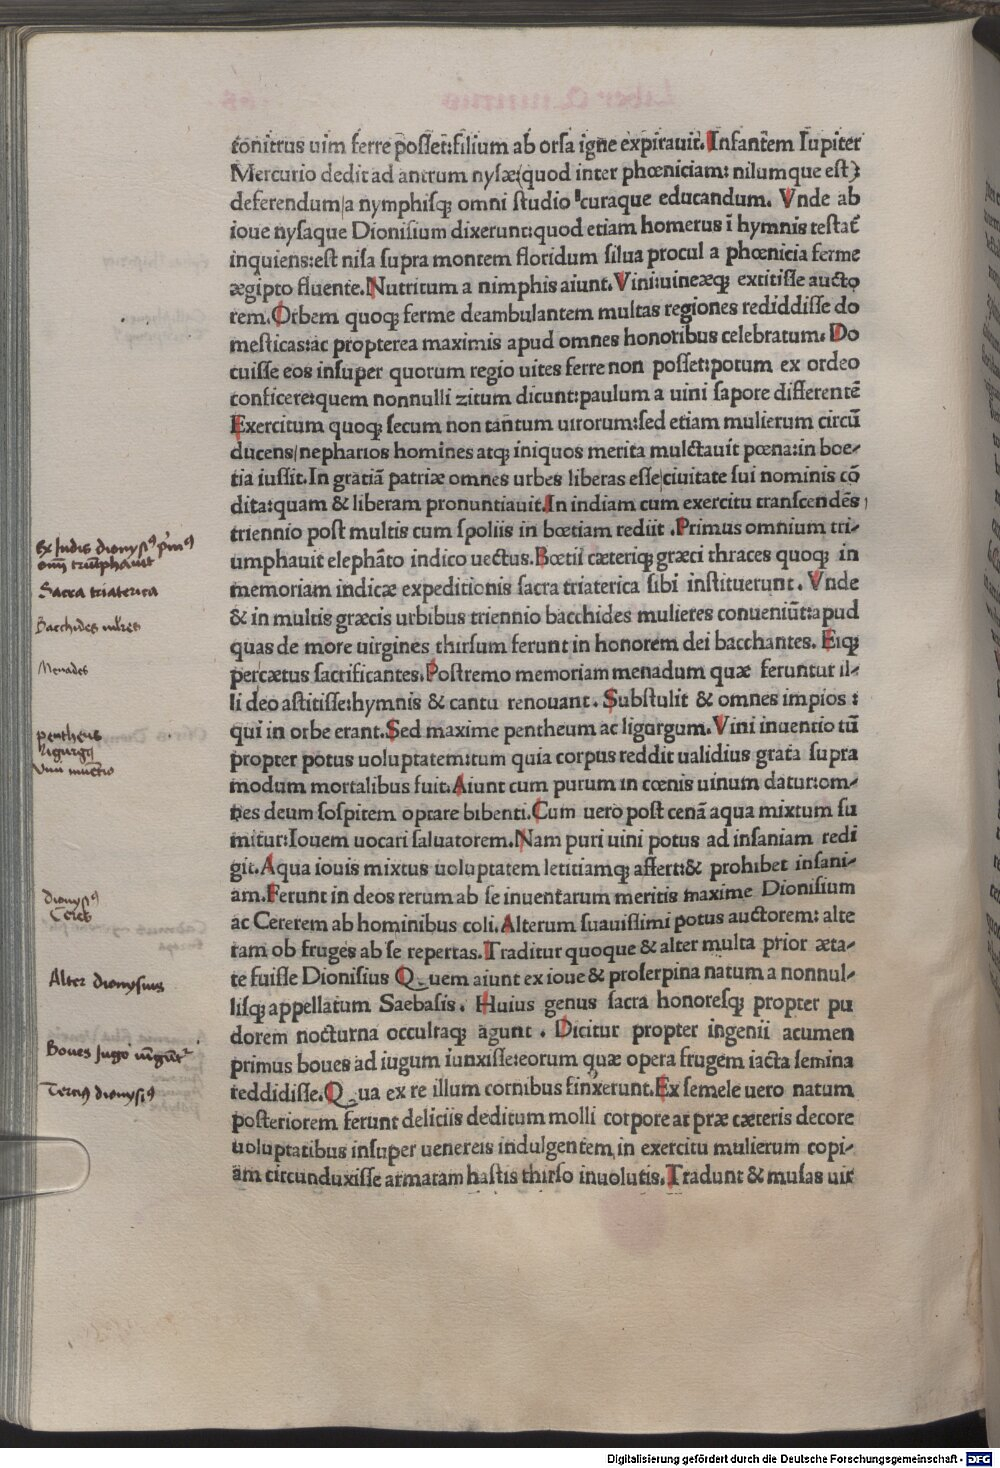 tonitrus uim ferre posset:filium ab orsa igne expirauit. Infantem Iupiter
Mercurio dedit ad antrum nysæ(quod inter phœniciam: nilumque est)
deferendum/a nymphisq; omni studio curaque educandum. Vnde ab
ioue nysaque Dionisium dixerunt:quod etiam homerus ī hymnis testat̃
inquiens:est nisa supra montem floridum silua procul a phœnicia ferme
ægipto fluente. Nutritum a nimphis aiunt. Vini:uineæq; extitisse aucto
rem. Orbem quoq; ferme deambulantem multas regiones rediddisse do
mesticas:ac propterea maximis apud omnes honoribus celebratum. Do
cuisse eos insuper quorum regio uites ferre non posset:potum ex ordeo
conficere:quem nonnulli zitum dicunt:paulum a uini sapore differentē
Exercitum quoq; secum non tantum uirorum:sed etiam mulierum circū
ducens/nepharios homines atq; iniquos merita mulctauit pœna:in boe-
tia iussit. In gratiā patriæ omnes urbes liberas esse/ciuitate sui nominis cō
dita:quam & liberam pronuntiauit. In indiam cum exercitu transcendēs
triennio post multis cum spoliis in bœtiam rediit . Primus omnium tri-
umphauit elephāto indico uectus. Bœtii cæteriq; græci thraces quoq; in
memoriam indicæ expeditionis sacra triaterica sibi instituerunt . Vnde
& in multis græcis urbibus triennio bacchides mulieres conueniūt:apud
quas de more uirgines thirsum ferunt in honorem dei bacchantes. Eiq;
percætus sacrificantes. Postremo memoriam menadum quæ feruntur il-
li deo astitisse:hymnis & cantu renouant . Substulit & omnes impios :
qui in orbe erant. Sed maxime pentheum ac ligurgum. Vini inuentio tū
propter potus uoluptatem:tum quia corpus reddit ualidius grata supra
modum mortalibus fuit. Aiunt cum purum in cœnis uinum datur:om-
nes deum sospitem optare bibenti. Cum uero post cenā aqua mixtum su
mitur:Iouem uocari saluatorem. Nam puri uini potus ad insaniam redi
git. Aqua iouis mixtus uoluptatem letitiamq; affert:& prohibet insani-
am. Ferunt in deos rerum ab se inuentarum meritis maxime Dionisium
ac Cererem ab hominibus coli. Alterum suauissimi potus auctorem: alte
ram ob fruges ab se repertas. Traditur quoque & alter multa prior æta-
te fuisse Dionisius Quem aiunt ex ioue & proserpina natum a nonnul-
lisq; appellatum Saebasis . Huius genus sacra honoresq; propter pu
dorem nocturna occultaq; agunt . Dicitur propter ingenii acumen
primus boues ad iugum iunxisse:eorum quæ opera frugem iacta semina
reddidisse. Qua ex re illum cornibus finxerunt. Ex semele uero natum
posteriorem ferunt deliciis deditum molli corpore at præ cæteris decore
uoluptatibus insuper uenereis indulgentem in exercitu mulierum copi-
am circunduxisse armatam hastis thirso inuolutis. Tradunt & musas uir
Sacra triaterica
Bacchides
Menades
pentheus
Vini
Ceres
Alter dionysius
Boues
Digitalisierung gefördert durch die Deutsche Forschungsgemeinschaft - DFG